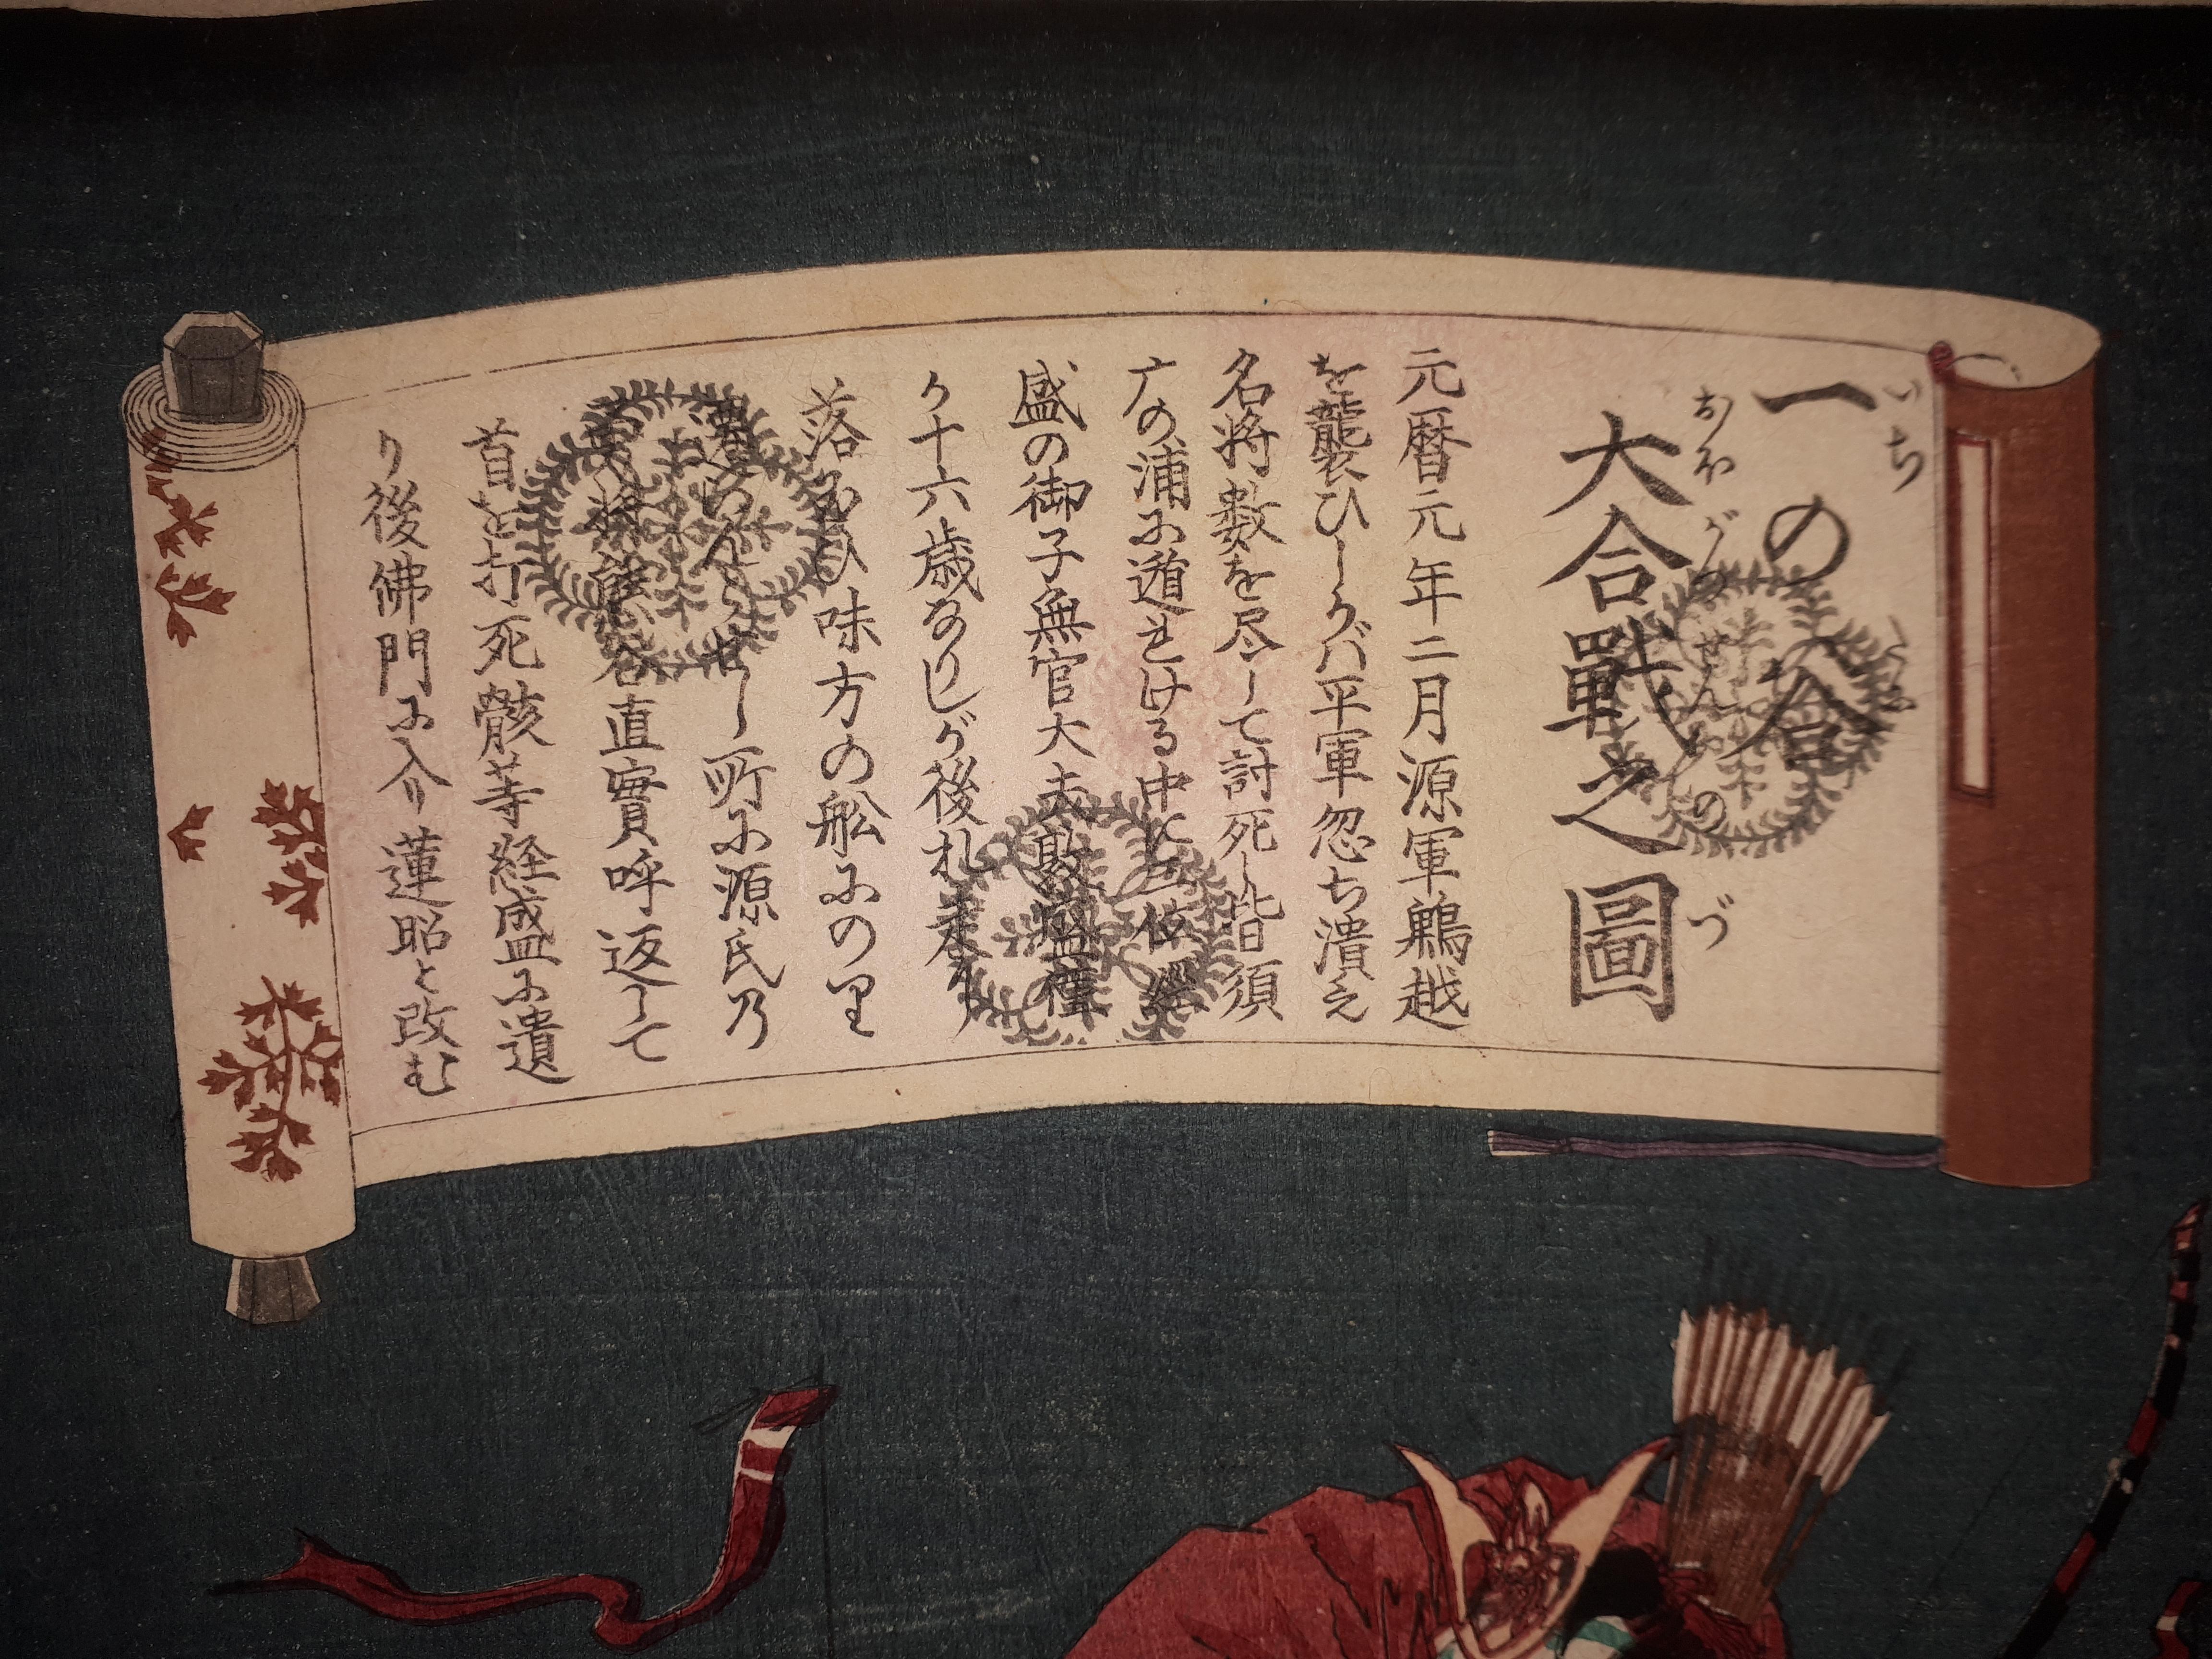 一の谷
いち
大合戰之圖
おほがつせんの づ
元暦元年二月源軍鵯越
を襲ひしかバ平軍忽ち潰え
名将数を尽して討死し皆須
广の浦に遁とける中に 経
盛の御子無官大夫敦盛僅
か十六歳なりしが後れ
落 ひ味方の舩にのり
んとせし所に源氏乃
勇将熊谷直實呼返して
首を打死骸等経盛に遺
り後佛門に入り蓮昭と改む